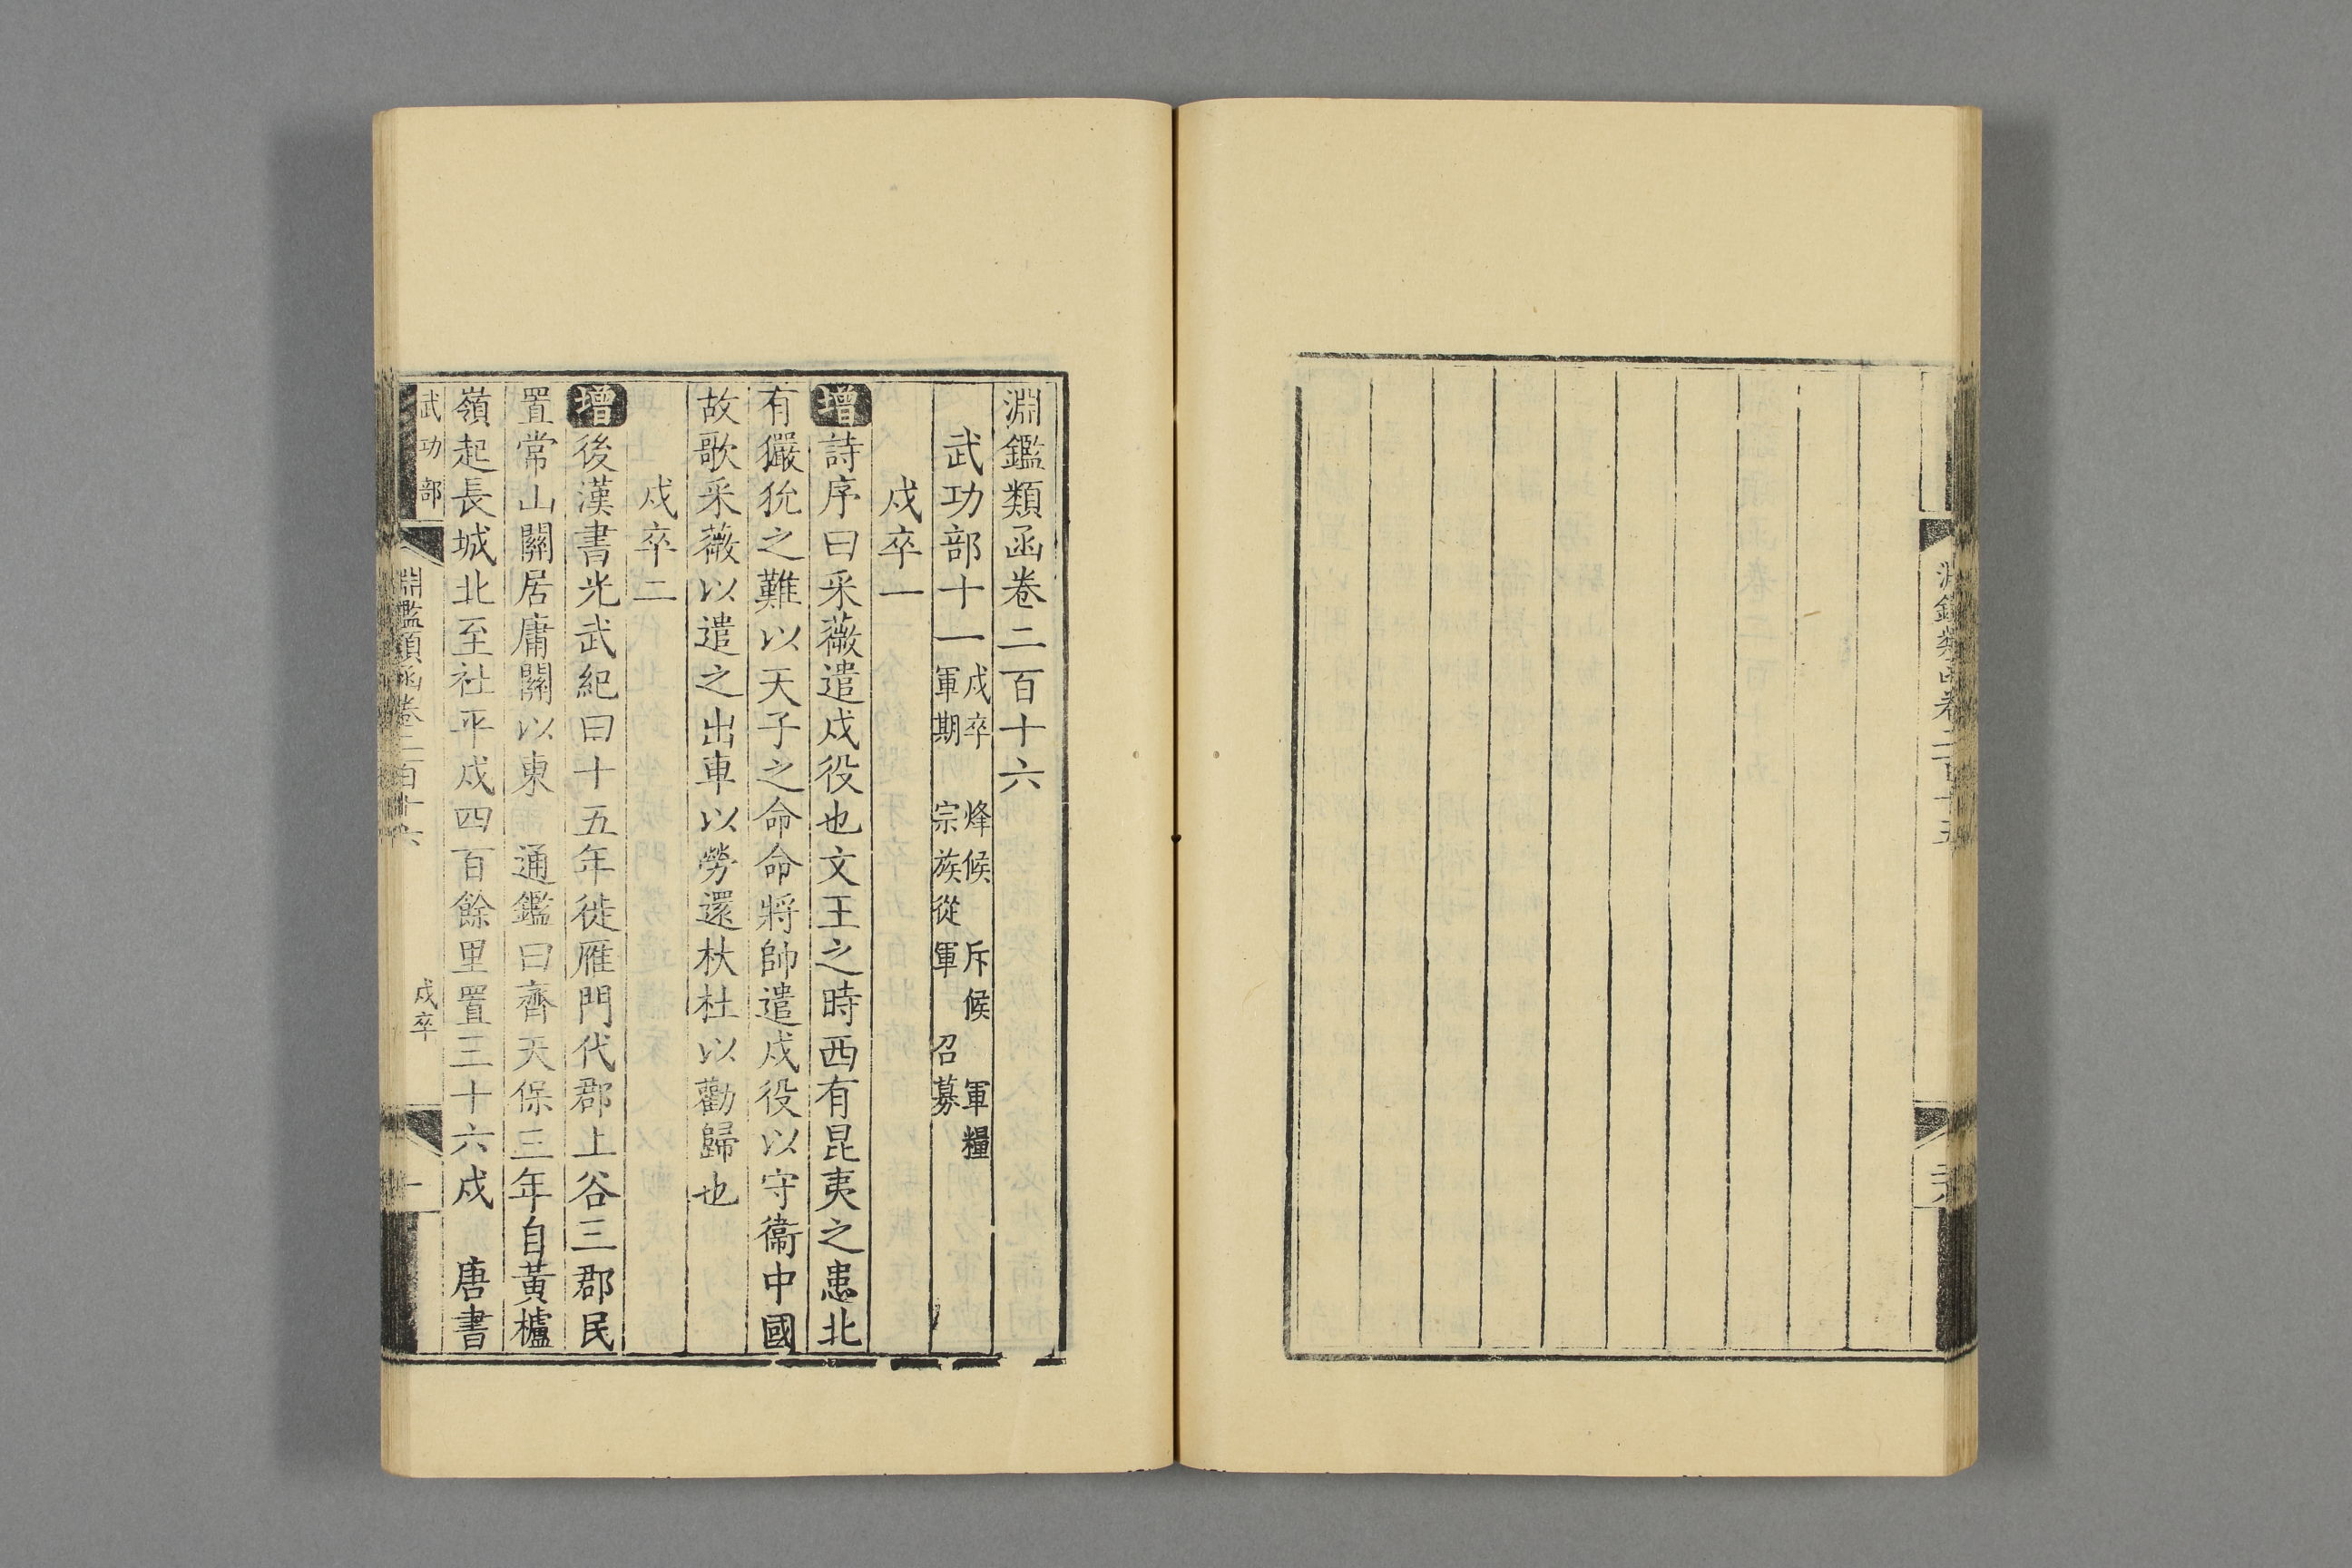 淵鑑類函卷二百十五
淵鑑類函卷二百十六
武功部十一 戍卒 烽候 斥候 軍糧
軍期 宗族從軍 召募
戍卒一
增詩序曰采薇遣戍役也文王之時西有昆夷之患北
有玁狁之難以天子之命命將帥遣戍役以守衞中國
故歌采薇以遣之出車以勞還杕杜以勸歸也
戍卒二
增後漢書光武紀曰十五年徙雁門代郡上谷三郡民
置常山關居庸關以東 通鑑曰齊天保三年自黃櫨
嶺起長城北至社平戍四百餘里置三十六戍 唐書
武功部 淵鑑類函卷二百十六 戍卒 一